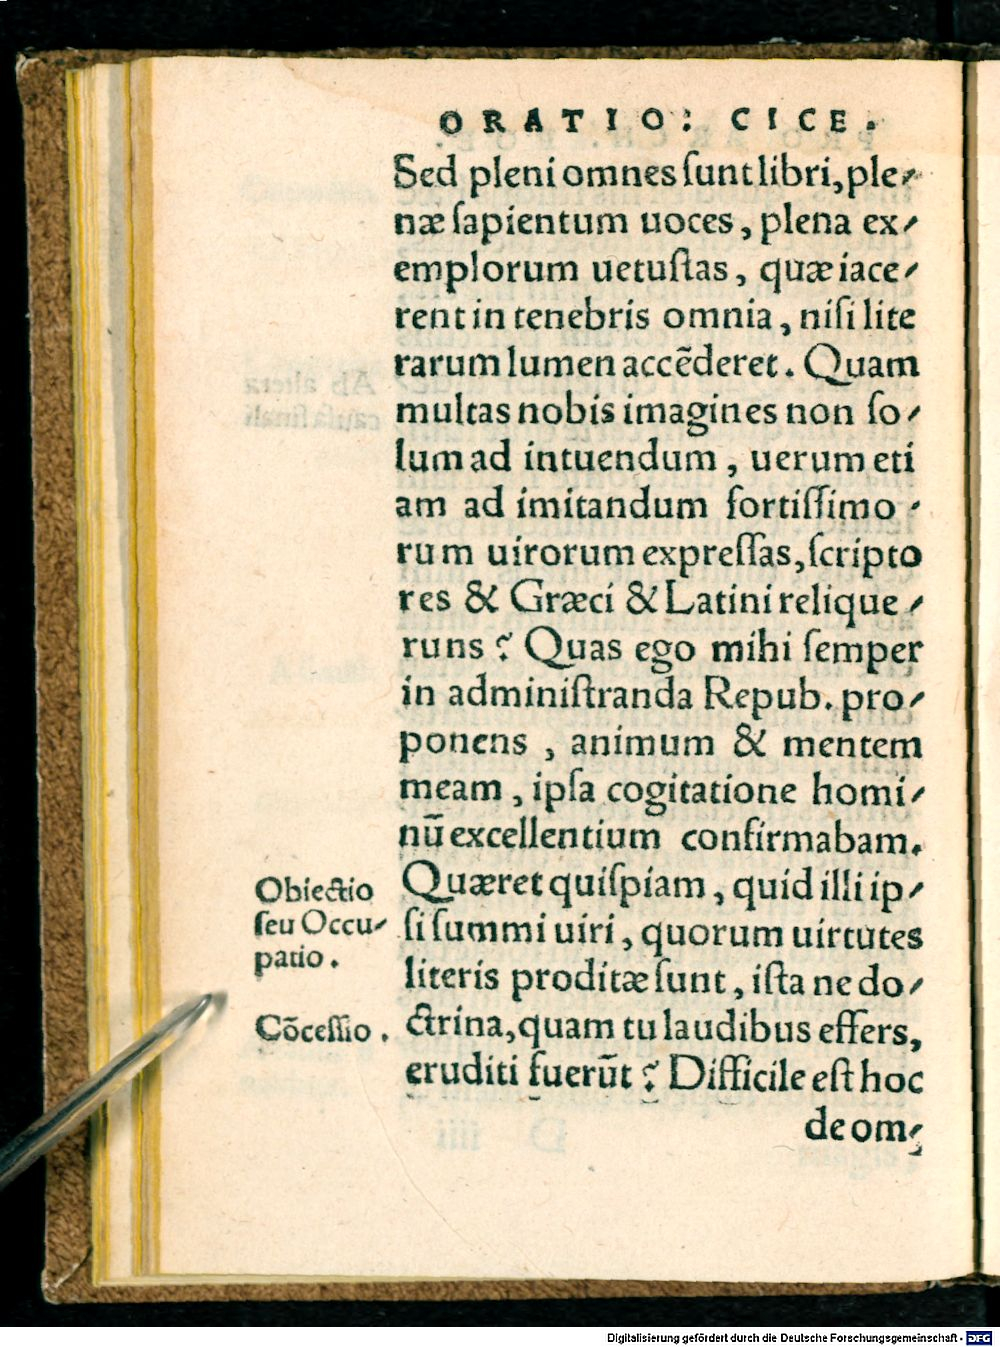 ORATIO: CICE.
Sed pleni omnes ſunt libri, ple⸗
næ ſapientum uoces, plena ex⸗
emplorum uetuſtas, quæ iace⸗
rent in tenebris omnia, niſi lite
rarum lumen accēderet. Quam
multas nobis imagines non ſo⸗
lum ad intuendum, uerum eti
am ad imitandum fortiſſimo⸗
rum uirorum expreſſas, ſcripto
res & Græci & Latini relique⸗
runs? Quas ego mihi ſemper
in adminiſtranda Repub. pro⸗
ponens, animum & mentem
meam, ipſa cogitatione homi⸗
nū excellentium confirmabam.
Quæret quiſpiam, quid illi ip⸗
ſi ſummi uiri, quorum uirtutes
literis proditæ ſunt, iſta ne do⸗
ctrina, quam tu laudibus effers,
eruditi fuerūt? Difficile eſt hoc
de om⸗
Obiectio
ſeu Occu⸗
patio.
Cōceſſio.
Digitalisierung gefördert durch die Deutsche Forschungsgemeinschaft - DFG